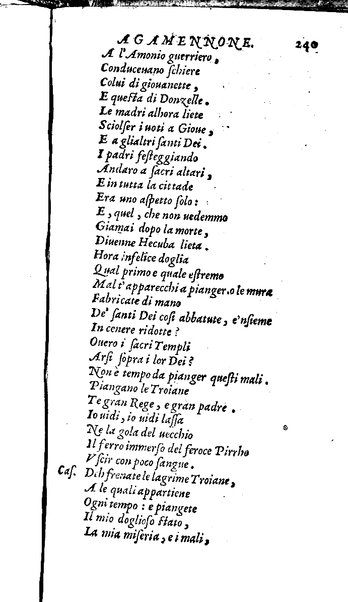 AGAMENNONE. 240
A l'Amonio guerriero,
Conduceuano schiere
Colui di giouanette,
E questa di Donzelle.
Le madri alhora liete
Sciolser i uoti a Gioue,
E a gli altri santi Dei.
I padri festeggiando
Andaro a sacri altari,
E in tutta la cittade
Era uno aspetto solo:
E, quel, che non uedemmo
Giamai dopo la morte,
Diuenne Hecuba lieta.
Hora infelice doglia
Qual primo e quale estremo
Mal t'apparecchi a pianger? o le mura
Fabricate di mano
De' santi Dei cosi abbatute, e'nsieme
In cenere ridotte?
Ouero i sacri Templi
Arsi sopra i lor Dei?
Non è tempo da pianger questi mali.
Piangano le Troiane
Te gran Rege, e gran padre.
Io uidi, io uidi lassa
Ne la gola del uecchio
Il ferro immerso del feroce Pirrho
Vscir con poco sangue.
Cas. Deh frenate le lagrime Troiane,
A le quali appartiene
Ogni tempo: e piangete
Il mio doglioso stato,
La mia miseria, e i mali,